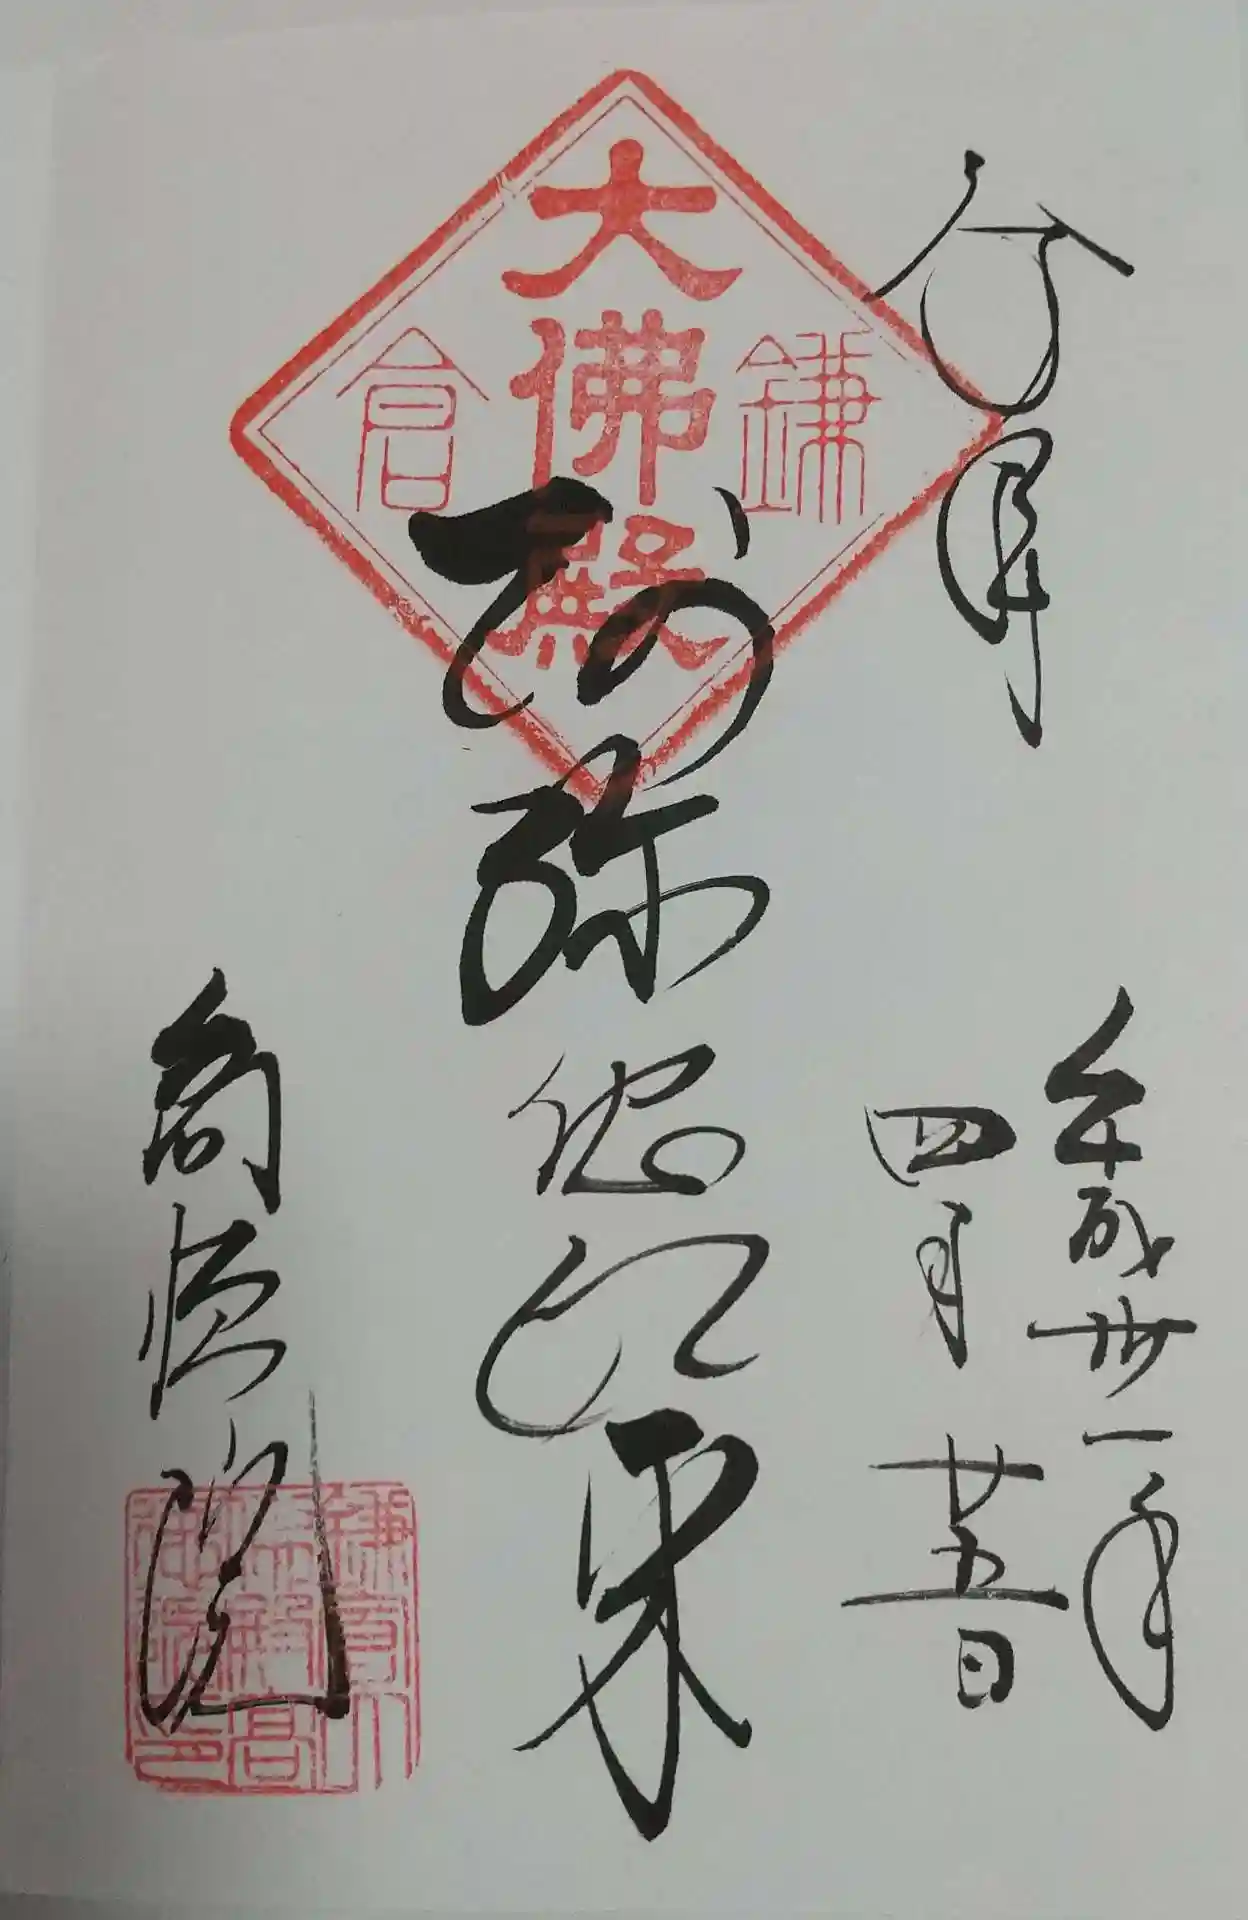 平成卅一年
四月廿五日
大佛殿
鎌倉
阿弥陀如来
高徳院